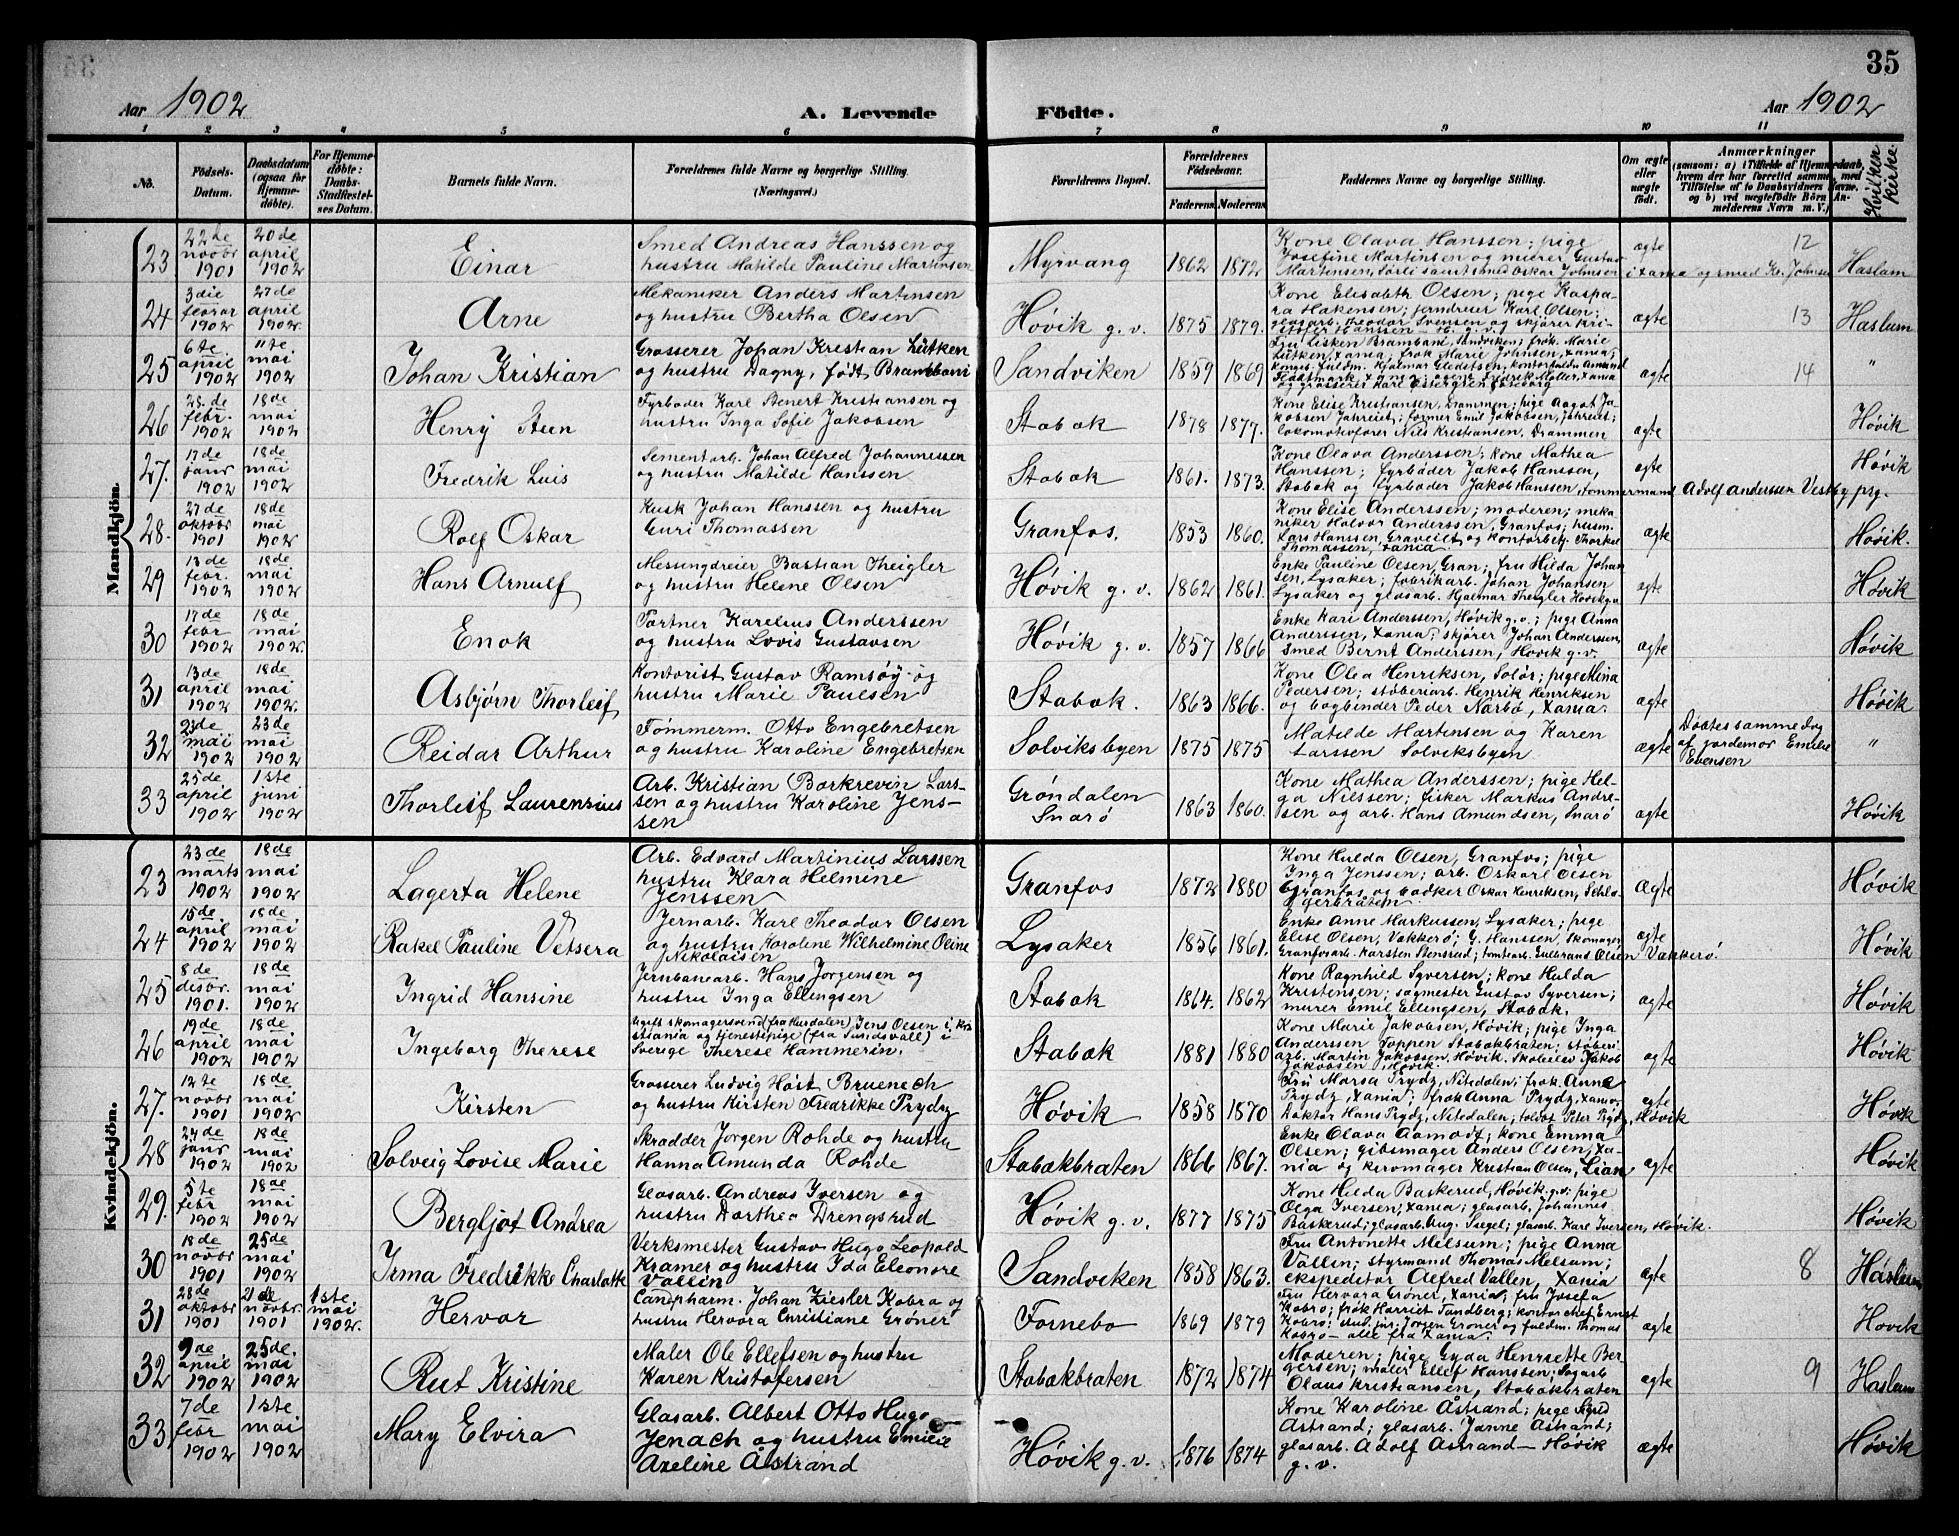 35
Aar 1902
A. Levende
Födte.
Aar 1902
1 2 3 4 5 6 7 8 9 10 11
No.
Födsels-
Datum.
Daabsdatum
(ogsaa for
Hjemme-
döbte).
For Hjemme-
döbte:
Daabs-
Stadfæstel-
ses Datum.
Barnets fulde Navn.
Forældrenes fulde Navne og borgerlige Stilling.
(Næringsvei.)
Forældrenes Bopæl.
Forældrenes
Födselsaar.
Faderens. Moderens.
Faddernes Navne og borgerlige Stilling.
Om ægte
eller
uægte
födt.
Anmærkninger
(saasom: a) i Tilfælde af Hjemmedaab,
hvem der har forrettet samme, med
Tilföielse af to Daabsvidners Navne,
og b) ved uægtefödte Börn An-
melderens Navn m. V.)
Hvilken
kirke
Mandkjön.
23
22de
novbr
1901
20de
april
1902
Einar
Smed Andreas Hanssen og
hustru Matilde Pauline Martinsen
Myrvang
1862 1872
Kone Olava Hanssen; pige
Josefine Martinsen og murer Gustav
Martinsen, Sørli samt smed Oskar Johnsen i Xania og smed Kr. Johnsen
ægte
12
Haslum
24
3die
februar
1902
27de
april
1902
Arne
Mekaniker Anders Martinsen
og hustru Bertha Olsen
Høvik g.v.
1875 1879.
Kone Elisabeth Olsen; pige Kaspa-
ra Hakensen; jerndreier Karl Olsen;
glasarb. Theodor Svensen og skjører Kri-
stofer Hanssen - H. g.v.
ægte
13
Haslum
25
6te
april
1902
11te
mai
1902
Johan Kristian
Grosserer Johan Kristian Lütken
og hustru Dagny, født Brambani
Sandviken
1859 1869
Fru Lisken Brambani, Sandviken; frøk. Marie
Lütken, Xania; frøk Marie Johnsen, Xania;
ægte
14
"
26
28de
febr.
1902
18de
mai
1902
Henry Steen
Fyrbøder Karl Stenert Kristiansen og
hustru Inga Sofie Jakobsen
Stabæk
1878 1877.
Kone Elise Kristiansen, Drammen; pige Aagot Ja-
kobsen Jahreiet; former Emil Jakobsen, Jahreiet;
lokomotivfører Nils Kristiansen, Drammen
ægte
Høvik
27.
17de
janr
1902
18de
mai
1902
Fredrik Luis
Sementarb. Johan Alfred Johannessen
og hustru Matilde Hanssen
Stabæk
1861. 1873.
Kone Olava Anderssen; kone Mathea
Hanssen; fyrbøder Jakob Hanssen,
Stabæk og fyrbøder Jakob Hanssen, tømmermand Adolf Anderssen Vestby prg.
ægte
Høvik
28.
27de
oktobr
1901
18de
mai
1902
Rolf Oskar
Kusk Johan Hanssen og hustru
Guri Thomassen
Granfos.
1853 1860.
Kone Elise Anderssen; moderen; meka-
niker Halvor Anderssen, Granfos; husm.
Lars Hanssen, Graveiet og kontorbetj. Thorkel
Thomassen, Xania
ægte
Høvik.
29
13de
febr.
1902
18de
mai
1902
Hans Arnulf
Messingdreier Bastian Theigler
og hustru Helene Olsen
Høvik g.v.
1862 1861.
Enke Pauline Olsen, Gran; fru Hilda Johan
sen, Lysaker; fabrikarb. Johan Johansen
Lysaker og glasarb. Hjalmar Theigler Høvik g.v
ægte
Høvik
30
17de
febr
1902
18de
mai
1902.
Enok
Portner Karelius Anderssen
og hustru Lovis Gustavsen
Høvik g.v.
1857 1866
Enke Kari Anderssen, Høvik g.v.; pige Anna
Anderssen, Xania; skjører Johan Anderssen,
smed Bernt Anderssen, Høvik g.v.
ægte
Høvik
31
13de
april
1902
18de
mai
1902.
Asbjørn Thorleif
Kontorist Gustav Ramsøy og
hustru Marie Paulsen
Stabæk.
1863 1866.
Kone Olea Henriksen, Solør; pige Mina
Pedersen; støberiarb. Henrik Henriksen
og bogbinder Peder Narbø, Xania.
ægte
Høvik
32
23de
mai
1902
23de
mai
1902
Reidar Arthur
Tømmerm. Otto Engebretsen
og hustru Karoline Engebretsen
Solviksbyen
1875 1875
Matilde Martinsen og Karen
Larssen Solviksbyen.
ægte
Døbtes samme dag
af jordemor Emilie
Evensen
"
33
25de
april
1902
1ste
juni
1902
Thorleif Laurenzius
Arb. Kristian Borkrevin Lars-
sen og hustru Karoline Jens-
sen
Grøndalen
Snarø
1863 1860.
Kone Mathea Anderssen; pige Hel-
ga Nilssen; fisker Markus Andre-
sen og arb. Hans Amundsen, Snarø
ægte
Høvik
Kvindekjön.
23
23de
marts
1902
18de
mai
1902
Lagerta Helene
Arb. Edvard Martinius Larssen
hustru Klara Helmine
Jenssen
Granfos
1872 1880
Kone Hulda Olsen, Granfos; pige
Inga Jenssen; arb. Oskarl Olsen
Granfos og bødker Oskar Henriksen,
ægte
Høvik
24
15de
april
1902
18de
mai
1902
Rakel Pauline Vetsera
Jernarb. Karl Theodor Olsen
og hustru Karoline Wilhelmine Oline
Nikolaisen
Lysaker
1856 1861.
Enke Anne Markussen, Lysaker; pige
Elise Olsen, Vækkerø; G. Hanssen, Skomager
Granfosarb. Karsten Stensrud; tomtearb. Gulbrand Olsen Vækkerø.
ægte
Høvik
25
8de
desbr.
1901.
18de
mai
1902
Ingrid Hansine
Jernbanearb. Hans Jørgensen og
hustru Inga Ellingsen
Stabæk
1864. 1862
Kone Ragnhild Syversen; kone Hulda
Kristensen; sagmester Gustav Syversen;
murer Emil Ellingsen, Stabæk.
ægte
Høvik
26
19de
april
1902
18de
mai
1902
Ingeborg Therese
Ugift skomagersvend (fra Hurdalen) Jens Olsen i Kri
stiania og tjenestepige (fra Sundsvall) i
Sverige Therese Hammerin.
Stabæk
1881 1880
Kone Marie Jakobsen, Høvik; pige Inga
Anderssen Toppen Stabækbraten; støberi-
arb. Martin Jakobsen, Høvik. Skoleelev Jakob
Jakobsen, Høvik.
ægte
Høvik
27.
12te
novbr
1901
18de
mai
1902
Kirsten
Grosserer Ludvig Høst Bruenech
og hustru Kirsten Fredrikke Prydz
Høvik
1858 1870
Fru Marsa Prydz, Nitedalen; frøk. Anna
Prydz, Xania; frøk Anna Prydz, Xania;
Doktor Hans Prydz, Nitedalen; toldbt Peter Prydz, Høvik
ægte
Høvik
28
24de
janr
1902
18de
mai
1902
Solveig Lovise Marie
Skrædder Jørgen Rohde og hustru
Hanna Amunda Rohde
Stabækbraten
1866 1867.
Enke Olava Aamodt; kone Emma
Olsen; gibsmager Anders Olsen, Xa-
nia og kurvmager Kristian Olsen, Lian
ægte
Høvik
29.
5te
febr
1902
18de
mai
1902
Bergljot Andrea
Glasarb. Andreas Iversen og
hustru Dorthea Drengsrud
Høvik g.v.
1877 1875
Kone Hilda Baskerud, Høvik g.v.; pige
Olga Iversen, Xania; glasarb. Johannes
Baskerud; glasarb. Aug. Siegel; glasarb. Karl Iversen, Høvik.
ægte
Høvik
30
18de
novbr
1901
25de
mai
1902
Irma Fredrikke Charlotte
Verksmester Gustav Hugo Leopold
Kramer og hustru Ida Eleonore
Vallin
Sandviken
1858 1863.
Fru Antonette Melsum; pige Anna
Vallin; styrmand Thomas Melsum;
ekspeditør Alfred Vallin, Xania
ægte
8
Haslum
31
28de
oktobr
1901
21de
novbr.
1901
1ste
mai
1902.
Hervor
Candpharm. Johan Ziesler Kobro og
hustru Hervora Christiane Grøner
Fornebo
1869 1879
Fru Hervara Grøner, Xania; fru Josefa
Kobro; frøk Harriet Tandberg; kontorchef Ernst
Kobro; stud. jur. Jørgen Grøner og fuldm. Thomas
Kobro - alle fra Xania
ægte
Høvik
32
9de
april
1902
25de.
mai
1902
Rut Kristine
Maler Ole Ellefsen og hustru
Karen Kristofersen
Stabækbraten
1872 1874
Moderen; pige Gyda Henriette Ber-
gersen; maler Ellef Hanssen; Sagarb
Olaus Kristiansen, Stabækbraten
ægte
9
Haslum
33
7de
febr
1902
1ste
mai
1902
Mary Elvira
Glasarb. Albert Otto Hugo
Jenach og hustru Emilie
Axeline Åstrand
Høvik g.v.
1876 1874
Kone Karoline Åstrand; pige Sigrid
Åstrand; glasarb. Janne Åstrand;
glasarb. Adolf Åstrand - Høvik
g.v.
ægte
Høvik